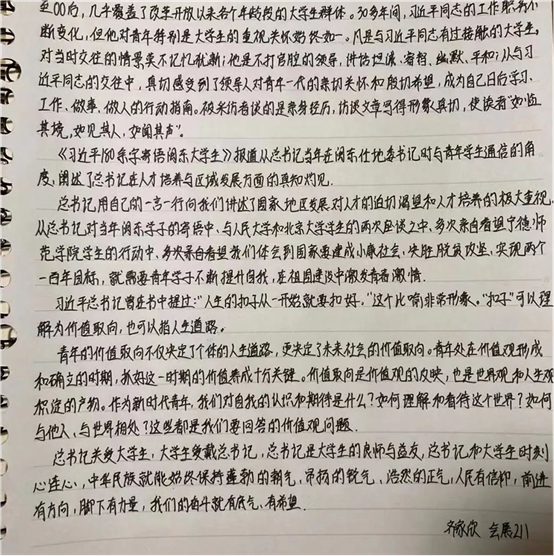 至00向,几乎覆盖了改革开放以来各个年龄段的大学生群体。30多年间,习近平同志的工作职务不
断变化,但他对青年特别是大学生的重视关怀始终如一。凡是与习近平同志有过接触的大学生,
对当时交往的情景莫不记忆犹新:他是不打官腔的领导,讲话坦诚、睿智、幽默、平和;从与习
近平同志的交往中,真切感受到了领导人对青年一代的亲切关怀和殷切希望,成为自己日后学习、
工作、做事、做人的行动指南。被采访者谈的是亲身经历,访谈文章写得形象真切,使读者"如临
其境,如见其人,如闻其声"。
《习近平180余字寄语闽东大学生》报道从总书记当年在闽东任地委书记时与青年学生通信的角
度,阐述了总书记在人才培养与区域发展方面的真知灼见。
总书记用自己的一言一行向我们讲述了国家、地区发展对人才的迫切渴望和人才培养的极大重视。
从总书记对当年闽东学子的寄语中、与人民大学和北京大学学生的两次座谈之中、多次亲自看望宁德师
范学院学生的行动中,多次亲自看望我们体会到国家要建成小康社会、决胜脱贫攻坚、实现两个
一百年目标,就需要青年学子不断提升自我,在祖国建设中激发青春激情.
习近平总书记曾在书中提过:"人生的扣子从一开始就要扣好,"这个比喻非常形象。"扣子"可以理
解为价值取向,也可以指人生道路。
青年的价值取向不仅决定了个体的人生道路,更决定了未来社会的价值取向。青年处在价值观形成
和确立的时期,抓好这一时期的价值养成十分关键。价值取向是价值观的反映,也是世界观和人生观
积淀的产物。作为新时代青年,我们对自我的认识和期待是什么?如何理解和看待这个世界?如何
与他人、与世界相处?这些都是我们要回答的价值观问题.
总书记关爱大学生,大学生爱戴总书记,总书记是大学生的良师与益友,总书记和大学生时刻
心连心,中华民族就能始终保持蓬勃的朝气、昂扬的锐气、浩然的正气,人民有信仰,前进
有方向,脚下有力量,我们的奋斗就有底气、有希望.
齐家欣 会展211